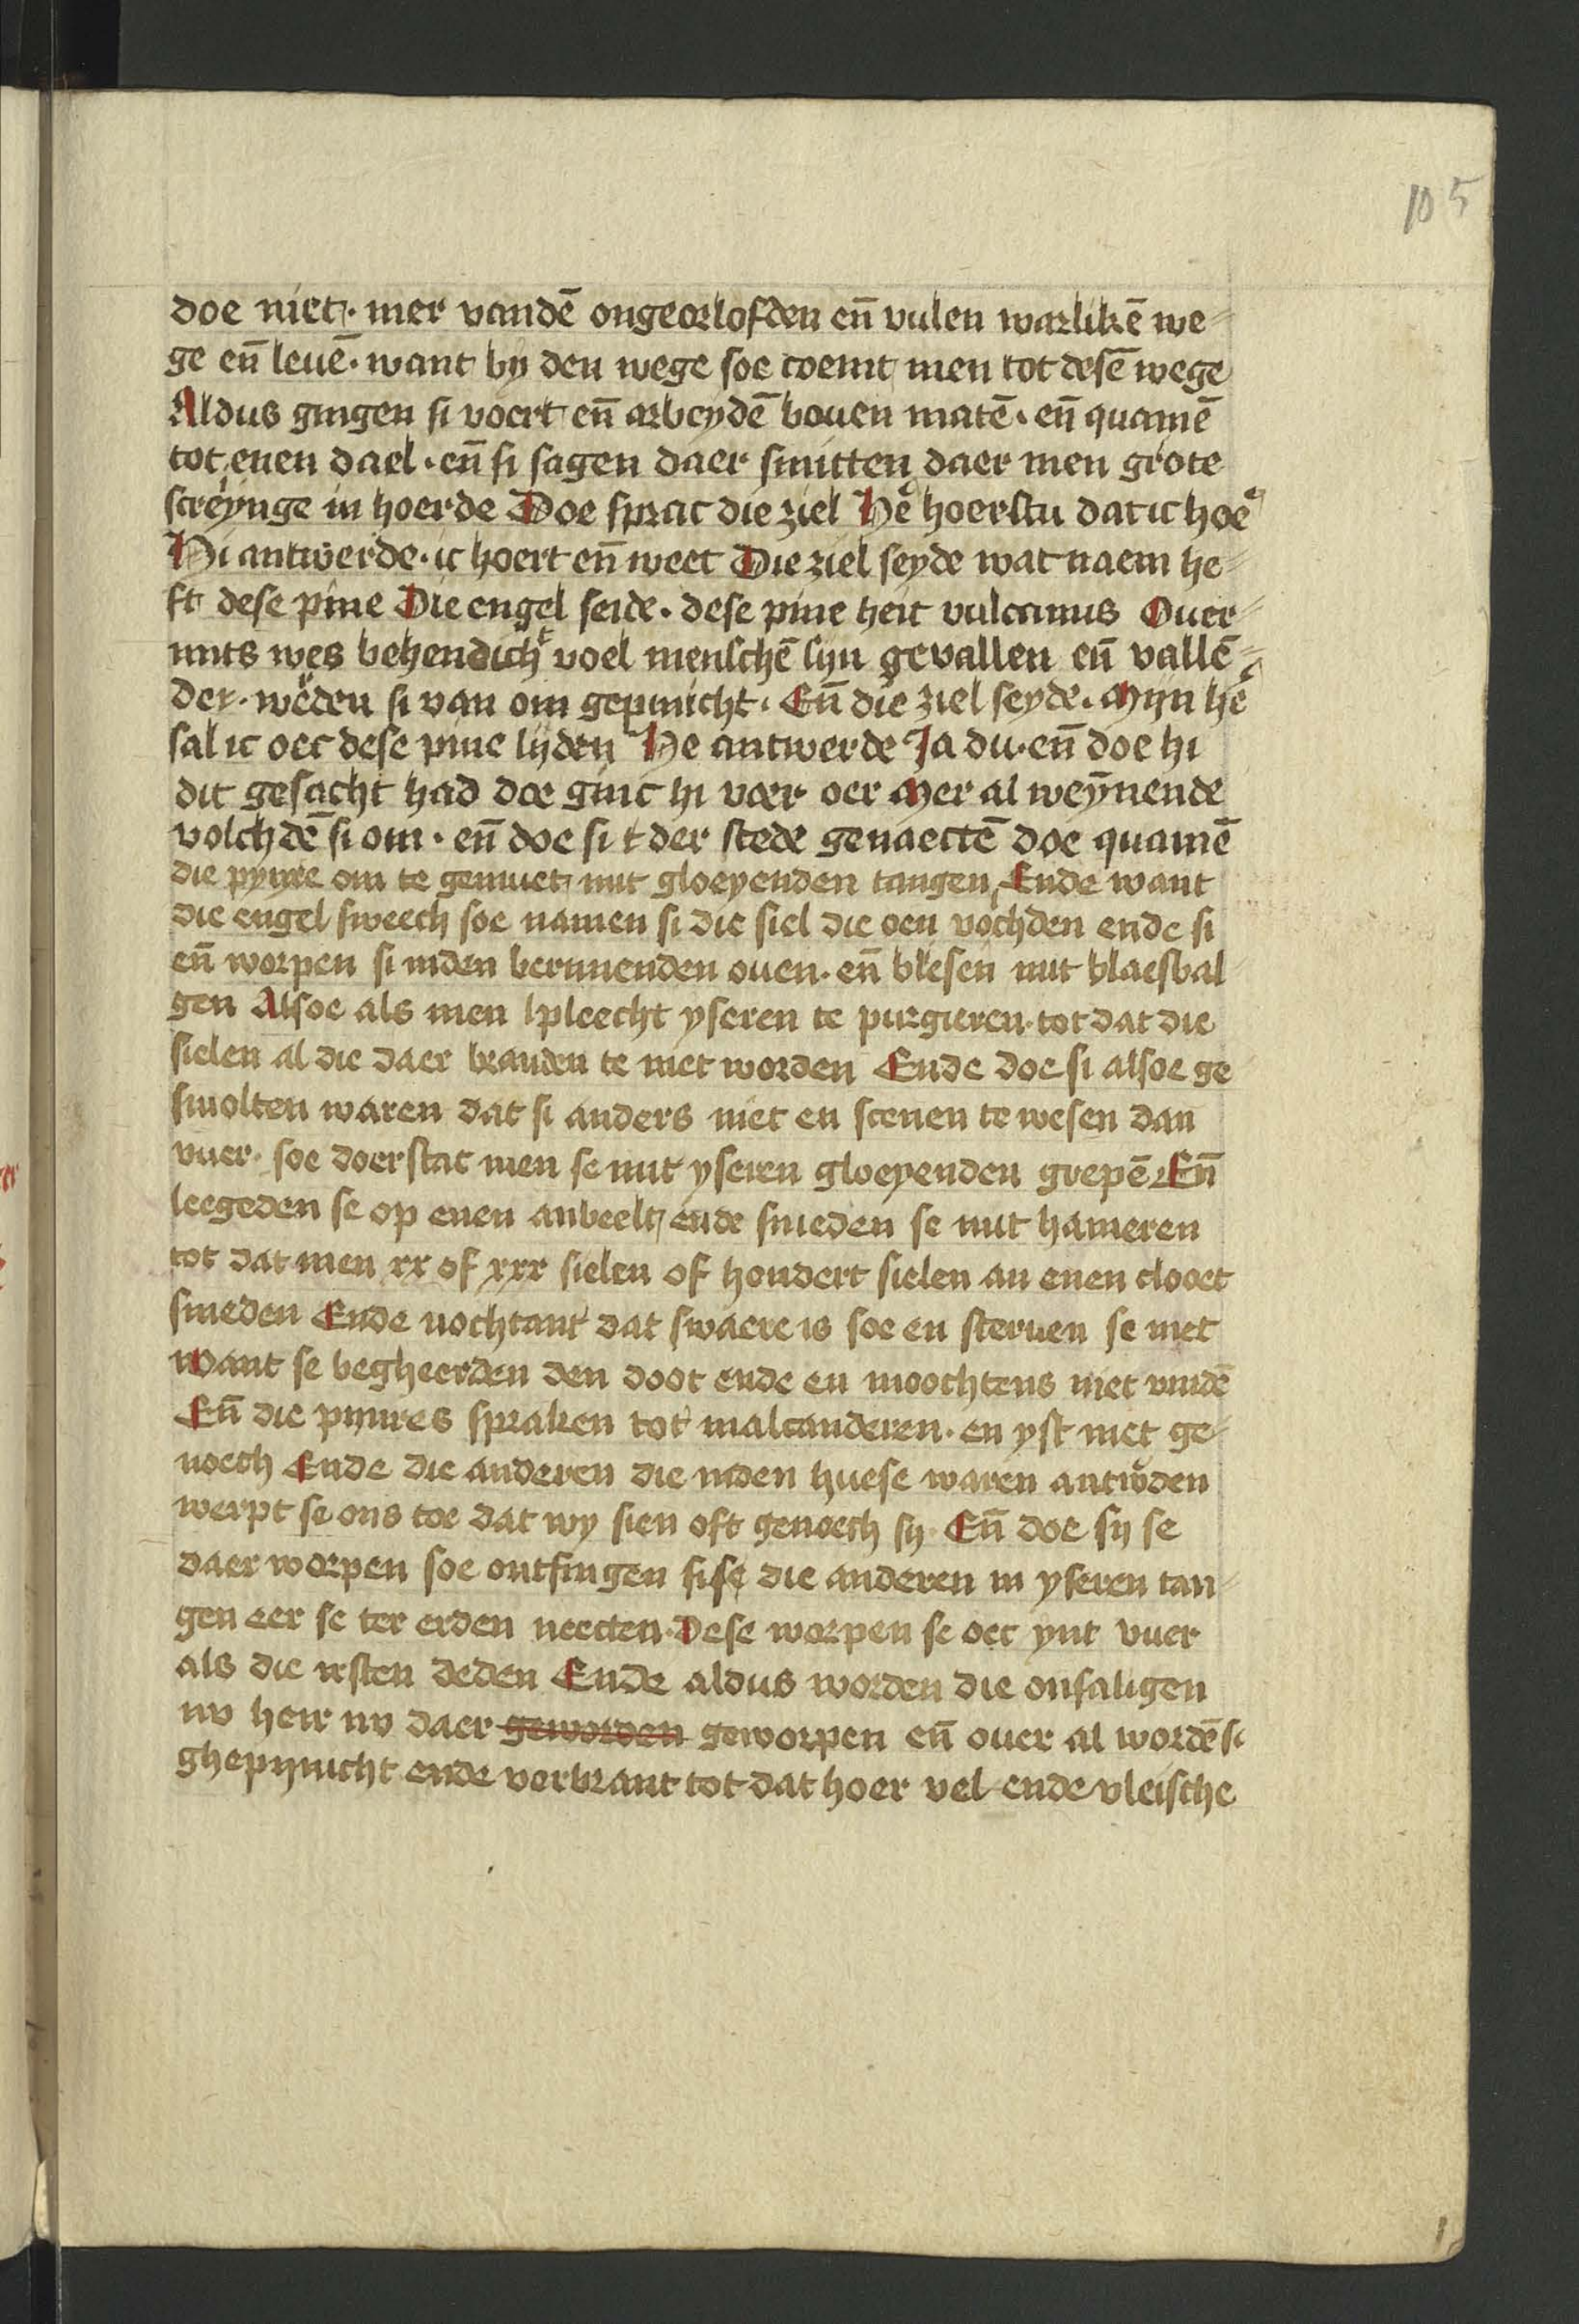 105
doe niet · mer vandē ongeorlofden en̄ vulen warlikē we-
ge en̄ leuē · want by den wege soe coemt men tot desē wege
Aldus gingen si voert en̄ arbeydē bouen matē · en̄ quamē
tot enen dael · en̄ si sagen daer smitten daer men grote
screynge in hoerde Doe sprac die ziel He͛ hoerstu dat ic hoe͛
Hi antwerde · ic hoert en̄ weet Die ziel seyde wat naem he-
ft dese pine Die engel seide · dese pine heit vulcanus Ouer-
mits wes behendich voel menschē sijn gevallen en̄ vallē-
der · we͛den si van om gepinicht · En̄ die ziel seyde · Mijn he͛
sal ic oec dese pine lijden He antwerde Ja du · en̄ doe hi
dit gesacht had doe ginc hi voer oer Mer al weynende
volchdē si om · en̄ doe si t der stede genaectē doe quamē
die pynre om te gemuet mit gloeyenden tangen Ende want
die engel sweech soe namen si die siel die oen vochden ende si
en̄ worpen si inden bernnenden ouen · en̄ bliesen mit blaesbal-
gen Alsoe als men pleecht yseren te purgieren · tot dat die
sielen al die daer branden te niet worden Ende doe si alsoe ge
smolten waren dat si anders niet en scenen te wesen dan
vuer · soe doerstac men se mit yseren gloeyenden grepē En̄
leegeden se op enen anbeelt ende smeden se mit hameren
tot dat men xx of xxx sielen of hondert sielen an enen clooet
smeden Ende nochtant dat swaere is soe en steruen se niet
want se begheerden den doot ende en moochtens niet vindē
En̄ die pijnres spraken tot malcanderen · en yst niet ge-
noech Ende die anderen die inden huese waren antw͛den
werpt se ons toe dat wy sien oft genoech sij · En̄ doe sij se
daer worpen soe ontfingen sise die anderen in yseren tan-
gen eer se ter erden neecten · Dese worpen se oec ynt vuer
als die irsten deden Ende aldus worden die onsaligen
nv heir nv daer geworden geworpen en̄ ouer al wordē si
ghepijnicht ende verbrant tot dat hoer vel ende vleische